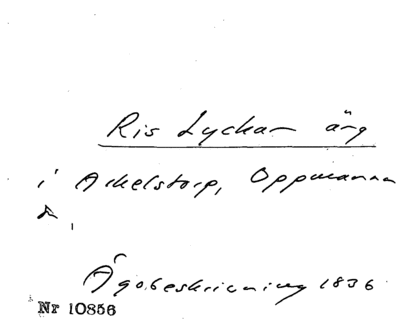 Ris Lyckan äng
i Ackelstorp, Oppmanna
A,
Ägobeskrivning 1836
Nr 10856